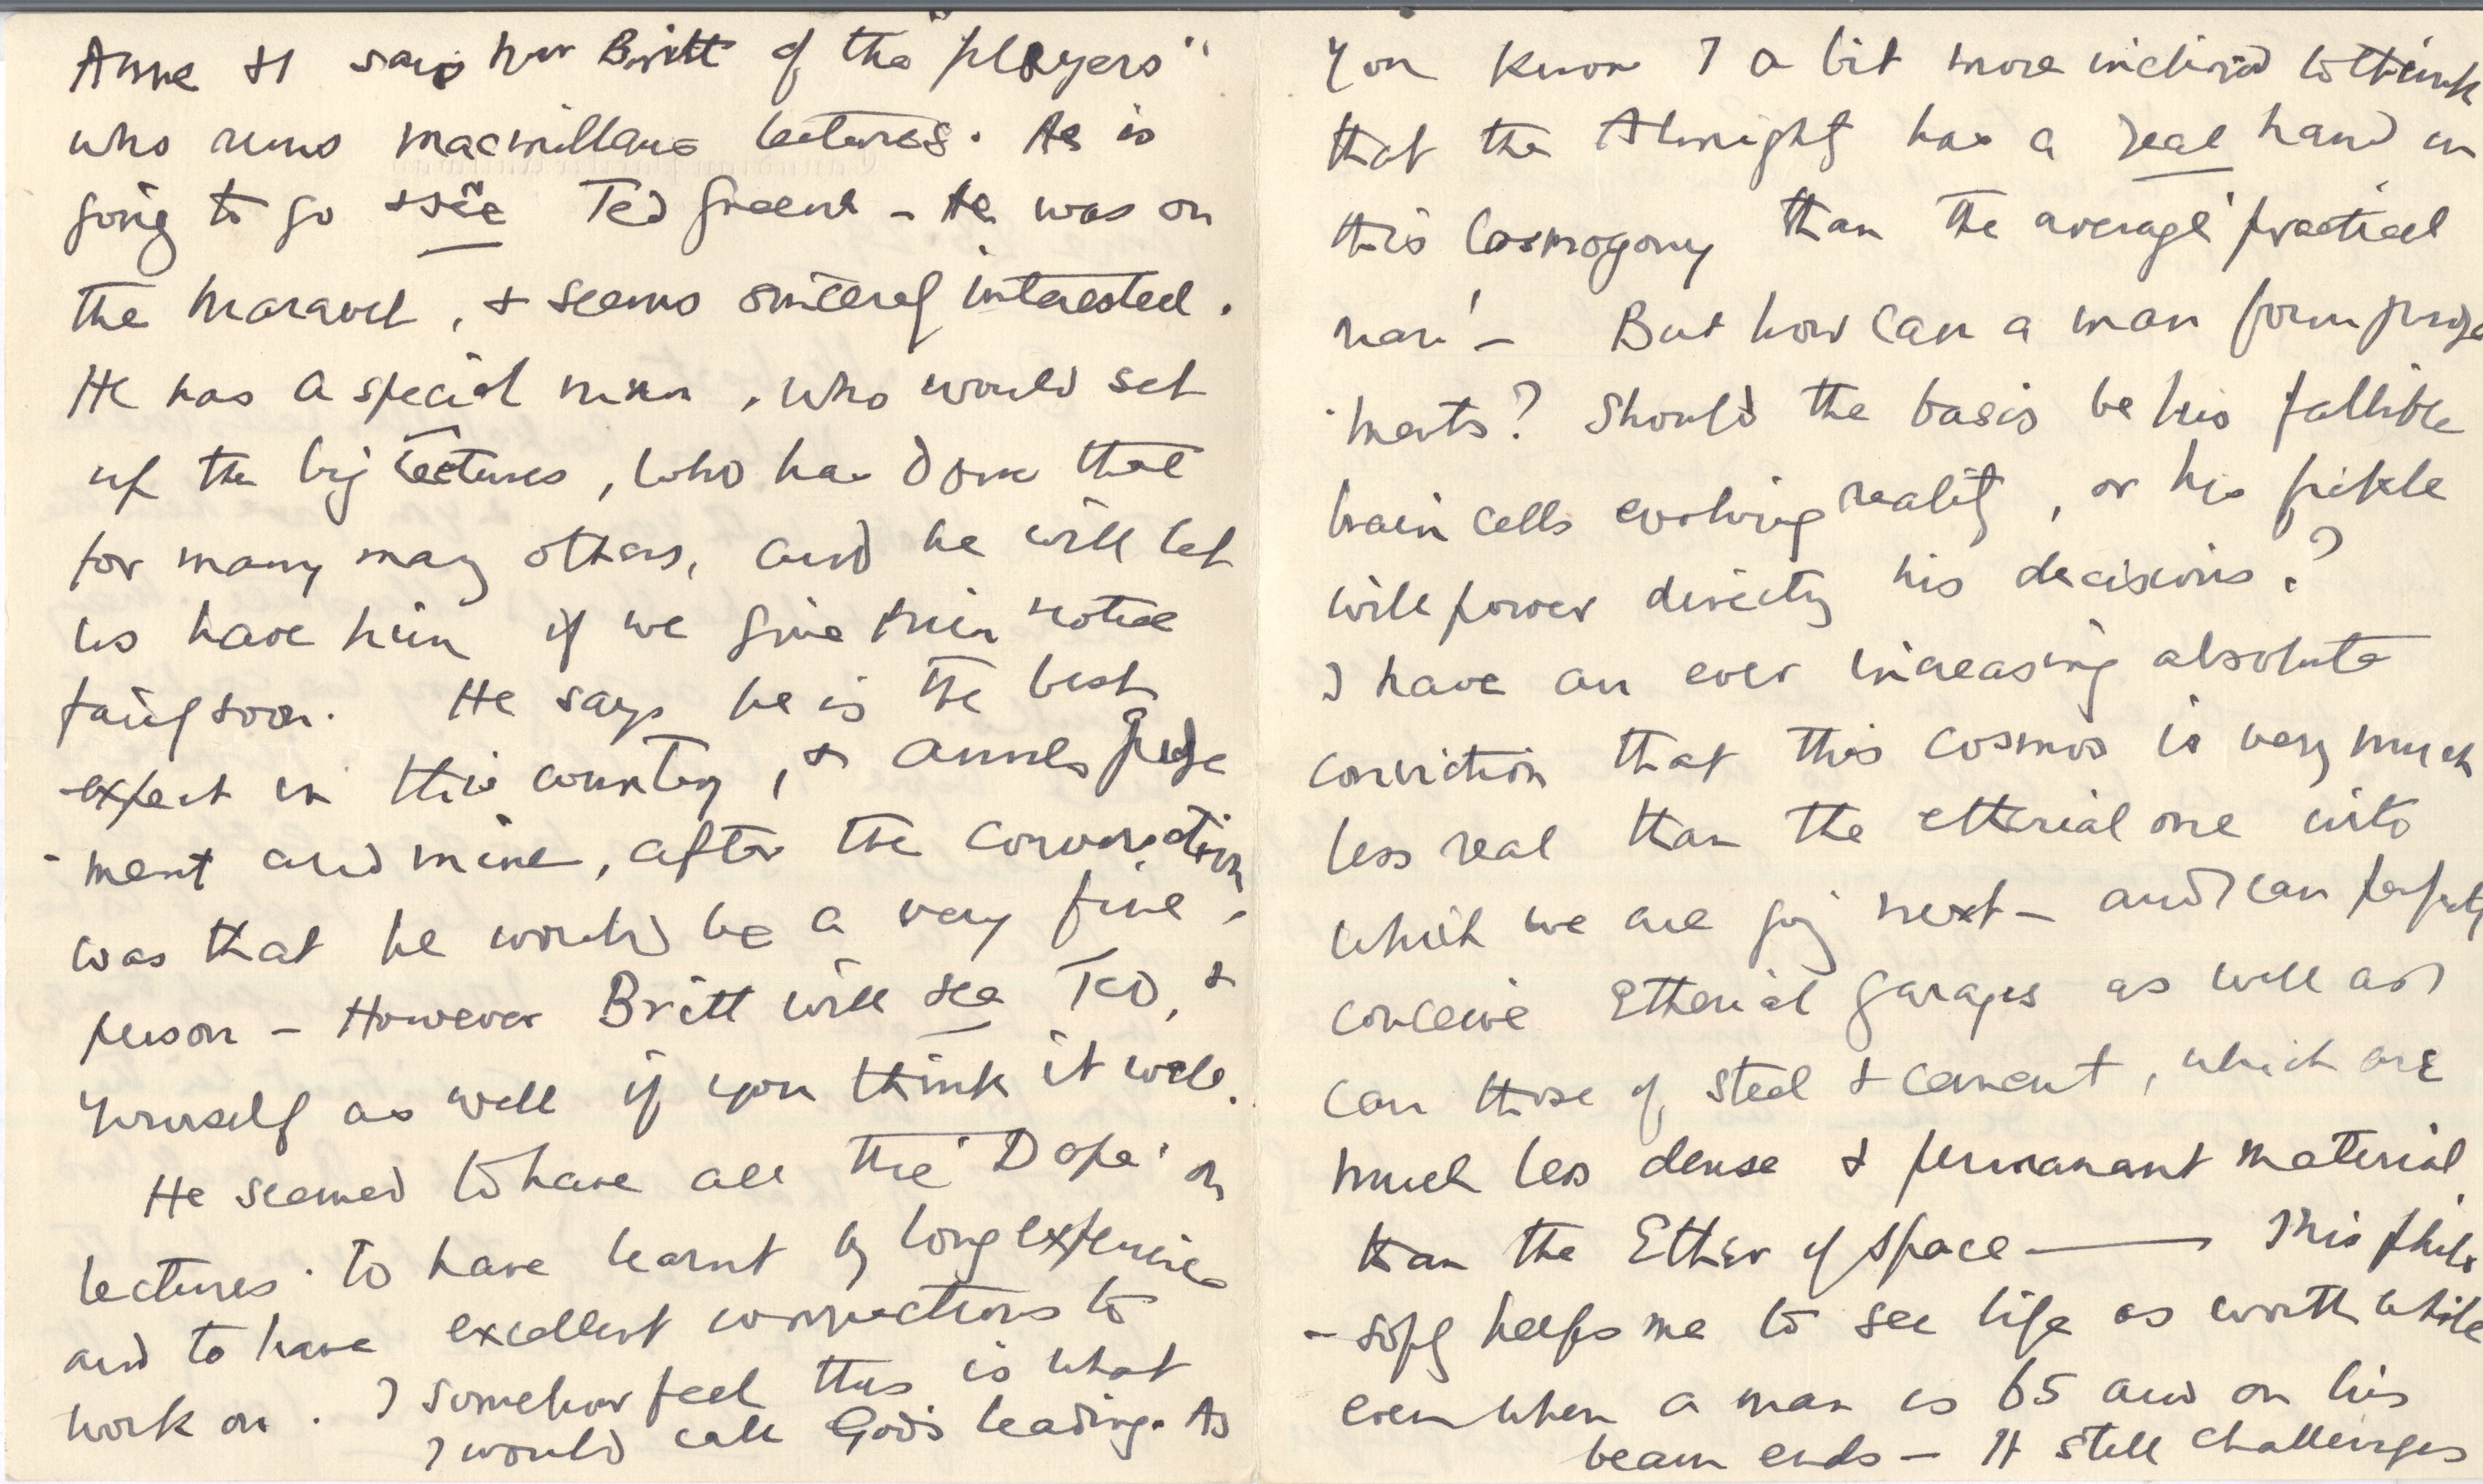 Anne & I saw Mr Britt of the "players"
who runs macmillans lectures. He is
going to go & see Ted Greene – He was on
the , & seems sincerely interested.
He has a special man, who would set
up the big lectures, who has done that
for many many others, and he will let
us have him if we give him notice
fairly soon. He says he is the best
expert in this country, & Annes judge
-ment and mine, after the conversation
was that he would be a very fine
person – However Britt will see Ted, &
yourself as well if you think it well.
He seemed to have all the 'Dope' on
lectures. to have learnt by long experience
and to have excellent connections to
work on. I somehow feel this is what
I would call God's leading. As
You know I a bit more inclined to think
that the Almighty has a real hand in
this Cosmogony than the average 'practical
man' – But how can a man form judge
-ments? Should the basis be his fallible
brain cells evolving reality, or his fickle
will power directing his decisions?
I have an ever increasing absolute
conviction that this cosmos is very much
less real than the etherial one into
which we are going next – and I can perfectly
conceive Etherial garages as well as I
can those of steel & cement, which are
much less dense & permanant material
than the Ether of space — This philo
-sophy helps me to see life as worth while
even when a man is 65 and on his
beam ends – It still challenges